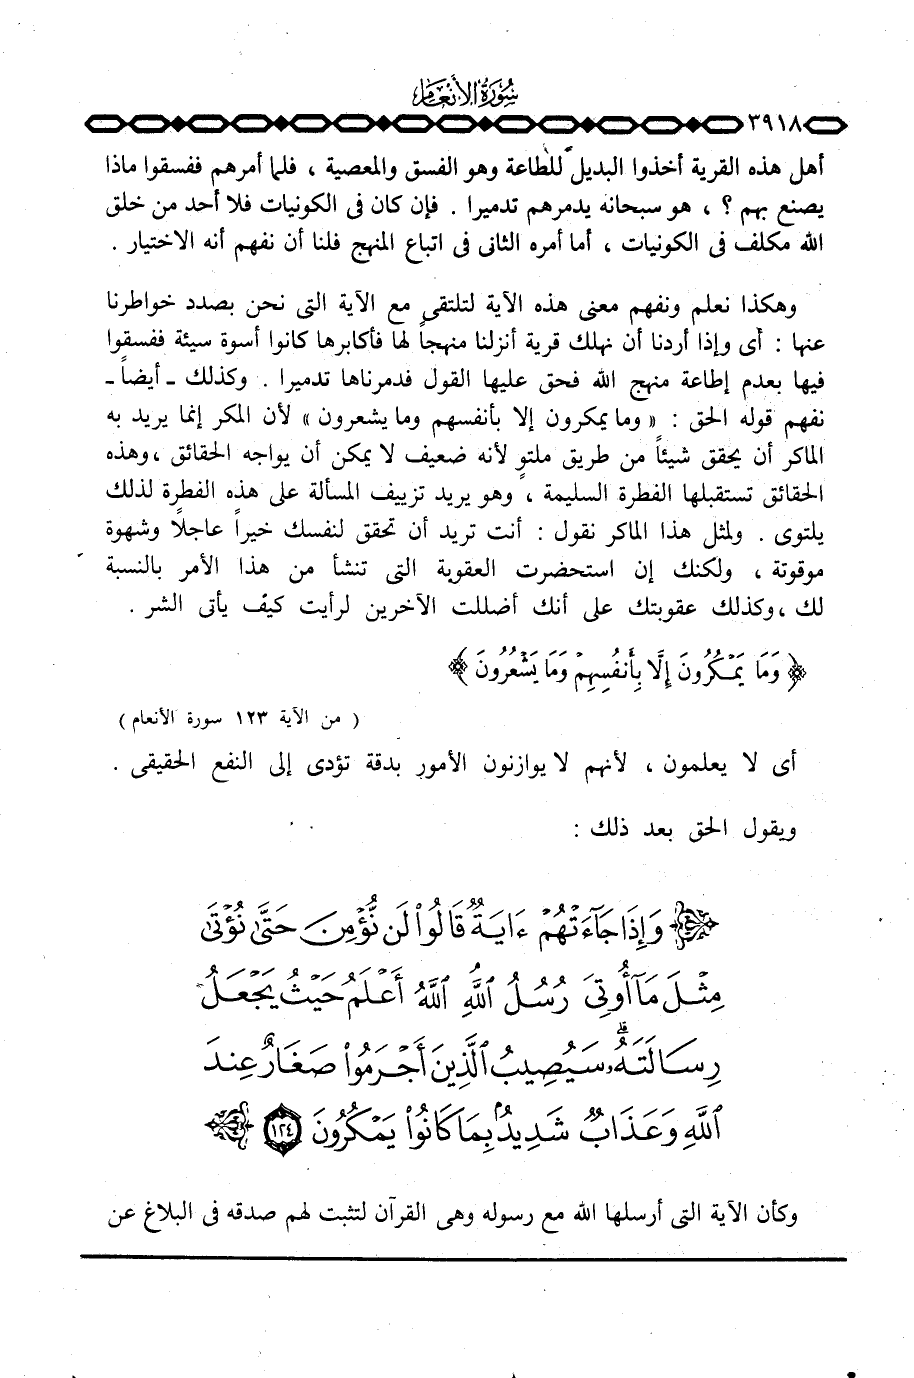 سورة الأنعام
٣٩١٨
أهل هذه القرية أخذوا البديل للطاعة وهو الفسق والمعصية ، فلما أمرهم ففسقوا ماذا
يصنع بهم ؟ ، هو سبحانه يدمرهم تدميرا . فإن كان فى الكونيات فلا أحد من خلق
الله مكلف فى الكونيات ، أما أمره الثانى فى اتباع المنهج فلنا أن نفهم أنه الاختيار .
وهكذا نعلم ونفهم معنى هذه الآية لتلتقى مع الآية التى نحن بصدد خواطرنا
عنها : أى وإذا أردنا أن نهلك قرية أنزلنا منهجاً لها فأكابرها كانوا أسوة سيئة ففسقوا
فيها بعدم إطاعة منهج الله فحق عليها القول فدمرناها تدميرا . وكذلك ـ أيضاً ـ
نفهم قوله الحق : « وما يمكرون إلا بأنفسهم وما يشعرون » لأن المكر إنما يريد به
الماكر أن يحقق شيئاً من طريق ملتوٍ لأنه ضعيف لا يمكن أن يواجه الحقائق ، وهذه
الحقائق تستقبلها الفطرة السليمة ، وهو يريد تزييف المسألة على هذه الفطرة لذلك
يلتوى . ولمثل هذا الماكر نقول : أنت تريد أن تحقق لنفسك خيراً عاجلاً وشهوة
موقوتة ، ولكنك إن استحضرت العقوبة التى تنشأ من هذا الأمر بالنسبة
لك ، وكذلك عقوبتك على أنك أضللت الآخرين لرأيت كيف يأتى الشر .
﴿ وَمَا يَمْكُرُونَ إِلَّا بِأَنفُسِهِمْ وَمَا يَشْعُرُونَ ﴾
( من الآية ١٢٣ سورة الأنعام )
أى لا يعلمون ، لأنهم لا يوازنون الأمور بدقة تؤدى إلى النفع الحقيقى .
ويقول الحق بعد ذلك :
﴿ وَإِذَا جَآءَتْهُمْ ءَايَةٌ قَالُوا۟ لَن نُّؤْمِنَ حَتَّىٰ نُؤْتَىٰ
مِثْلَ مَآ أُوتِىَ رُسُلُ ٱللَّهِ ٱللَّهُ أَعْلَمُ حَيْثُ يَجْعَلُ
رِسَالَتَهُۥ سَيُصِيبُ ٱلَّذِينَ أَجْرَمُوا۟ صَغَارٌ عِندَ
ٱللَّهِ وَعَذَابٌ شَدِيدٌۢ بِمَا كَانُوا۟ يَمْكُرُونَ ١٢٤ ﴾
وكأن الآية التى أرسلها الله مع رسوله وهى القرآن لتثبت لهم صدقه فى البلاغ عن